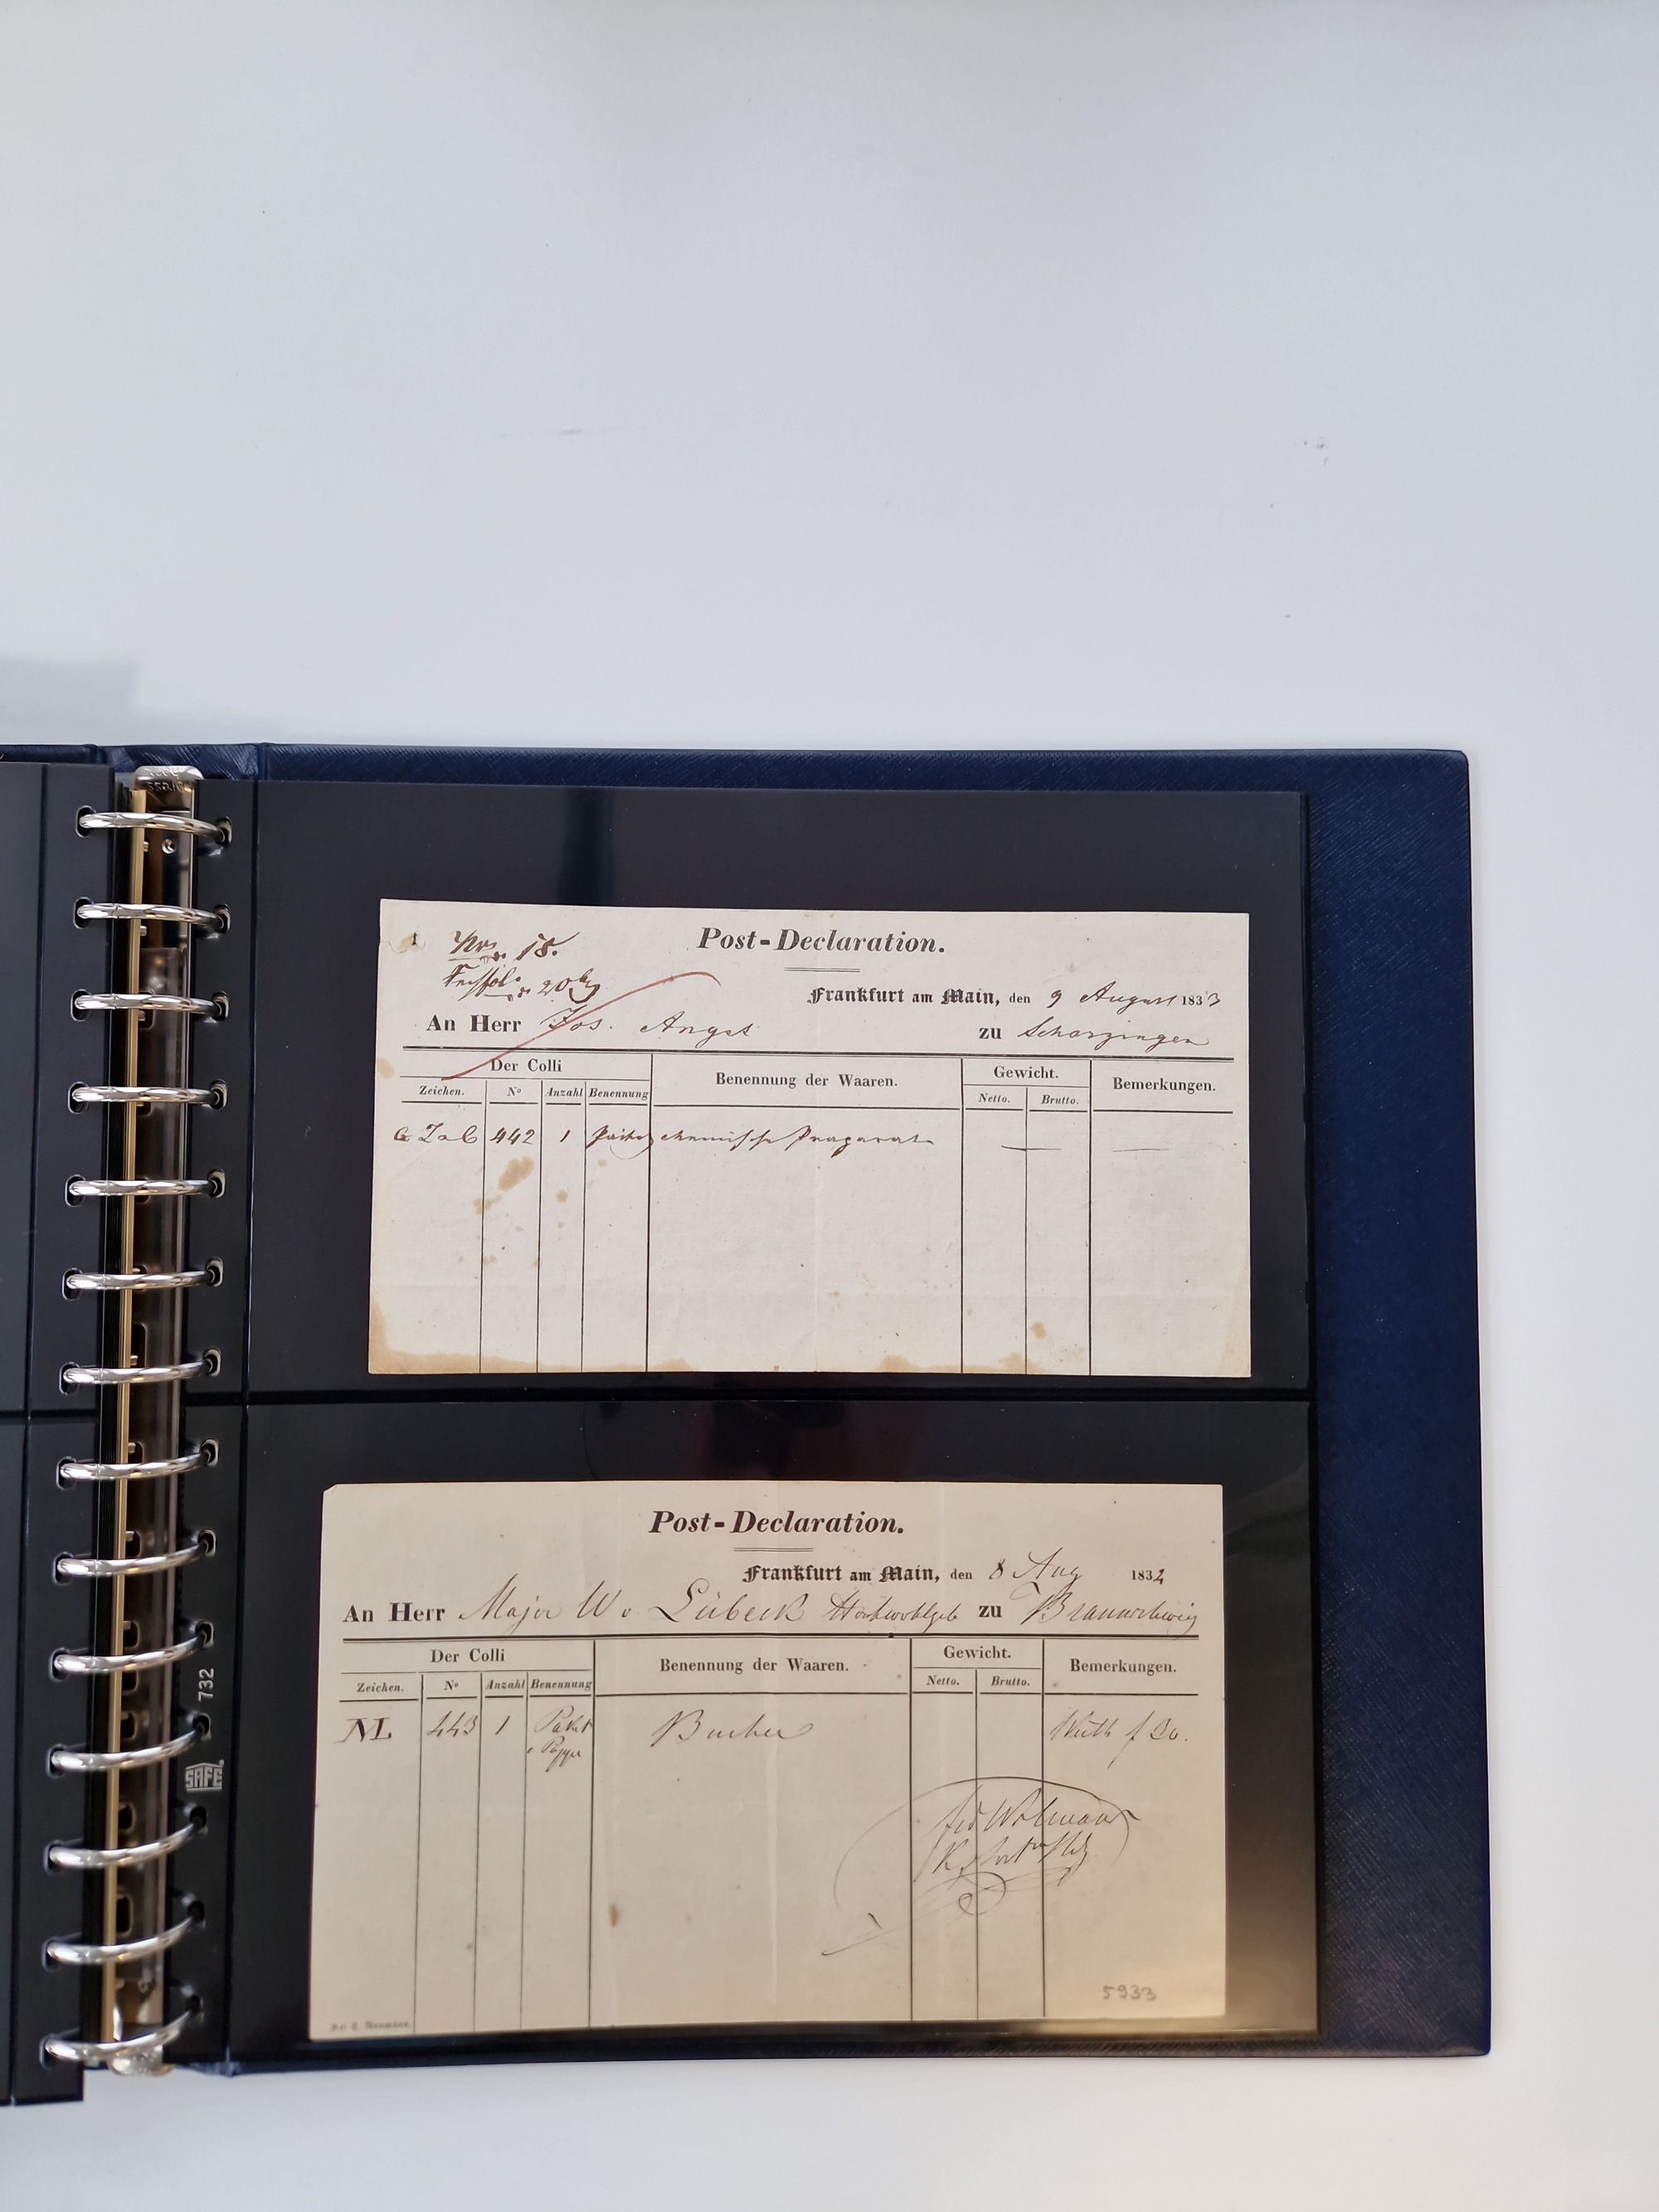 15.
Post-Declaration.
Frankfurt am Main, den 9 August 1833
An Herr Jos. Angst zu
Der Colli Benennung der Waaren. Gewicht. Bemerkungen.
Zeichen. No Anzahl Benennung Netto. Brutto.
442 1 chemische Praparate
Post-Declaration.
Frankfurt am Main, den 8 Aug 1832
An Herr Major W v Lübeck Hochwohlgeb zu Braunschweig
Der Colli Benennung der Waaren. Gewicht. Bemerkungen.
Zeichen. No Anzahl Benennung Netto. Brutto.
ML 443 1 Paket Bucher Werth f 20.
5933
732
SAFE